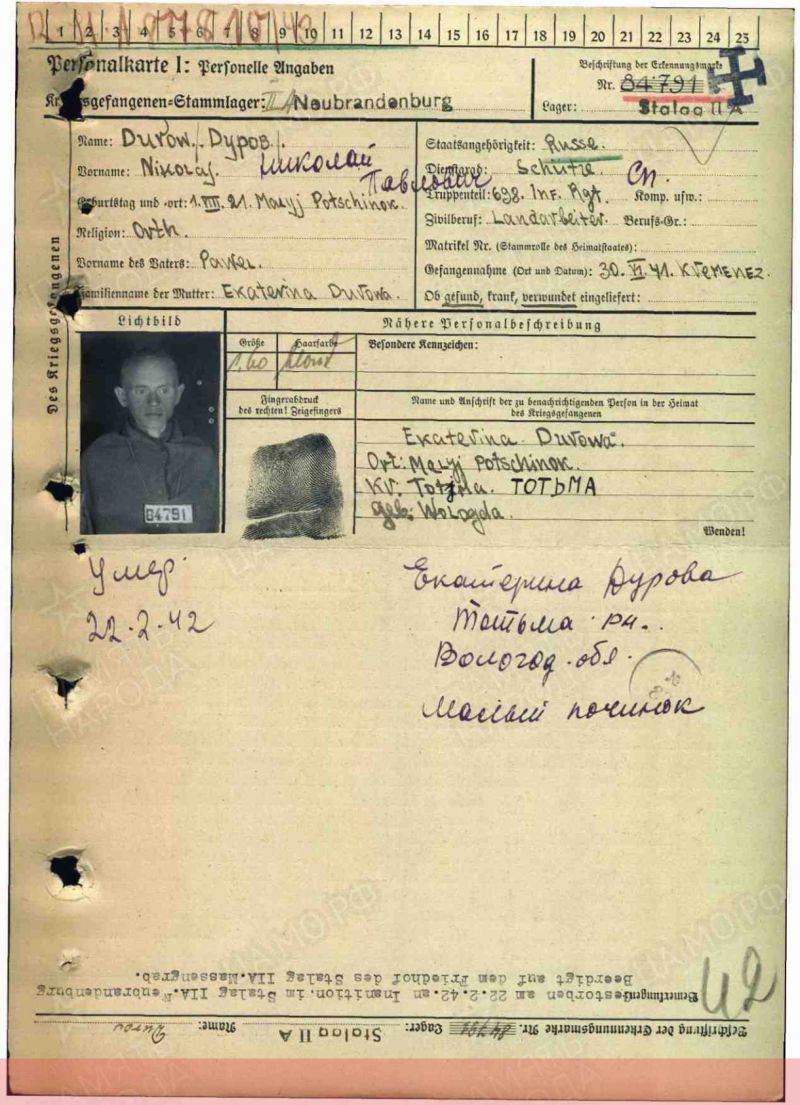 1 2 3 4 5 6 7 8 9 10 11 12 13 14 15 16 17 18 19 20 21 22 23 24 25
Personalkarte I: Personelle Angaben
Kriegsgefangenen=Stammlager: II A Neubrandenburg
Beschriftung der Erkennungsmarke
Nr. 84791
Lager: Stalag II A
Des Kriegsgefangenen
Name: Durow. /Дуров/.
Vorname: Nikolaj. Николай Павлович
Geburtstag und -ort: 1.VIII.21. Malyj Potschinok.
Religion: Orth.
Vorname des Vaters: Pawel.
Familienname der Mutter: Ekaterina Durowa.
Staatsangehörigkeit: Russe.
Dienstgrad: Schütze.
Truppenteil: 638. Inf. Rgt. Komp. usw.:
Zivilberuf: Landarbeiter. Berufs-Gr.:
Matrikel Nr. (Stammrolle des Heimatstaates):
Gefangennahme (Ort und Datum): 30.VI.41. Kremenez.
Ob gesund, krank, verwundet eingeliefert:
Lichtbild
84791
Nähere Personalbeschreibung
Größe Haarfarbe
1.60 blond
Besondere Kennzeichen:
Fingerabdruck
des rechten! Zeigefingers
Name und Anschrift der zu benachrichtigenden Person in der Heimat
des Kriegsgefangenen
Ekaterina Durowa.
Ort: Malyj Potschinok.
Kr. Totjma. ТОТЬМА
Geb. Wologda.
Wenden!
Умер
22-2-42
Екатерина Дурова
Тотьма рн.
Вологод. обл.
Малый починок
42
Beschriftung der Erkennungsmarke Nr. 84791 Lager: Stalag II A Name: Durow
Bemerkungen: Gestorben am 22.2.42 an Inanition im Stalag IIA Neubrandenburg
Beerdigt auf dem Friedhof des Stalag IIA.Massengrab.